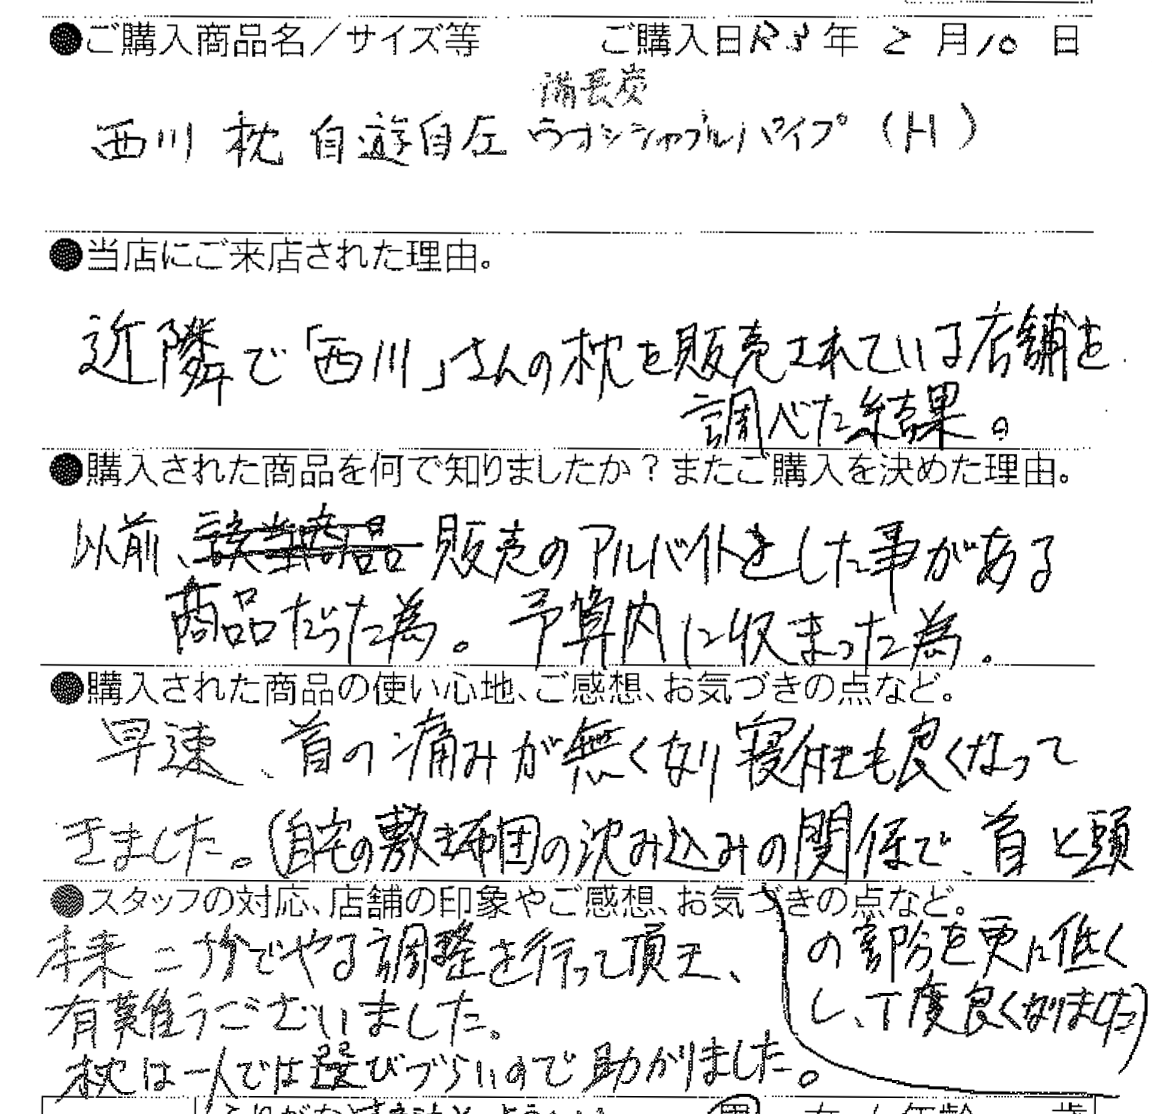 ●ご購入商品名／サイズ等　ご購入日R3年 2 月10 日
備長炭
西川 枕 自遊自左 ウオッシャブルパイプ (H)
●当店にご来店された理由。
近隣で「西川」さんの枕を販売されている店舗を
調べた結果。
●購入された商品を何で知りましたか？またご購入を決めた理由。
以前、該当商品 販売のアルバイトをした事がある
商品だった為。予算内に収まった為。
●購入された商品の使い心地、ご感想、お気づきの点など。
早速、首の痛みが無くなり寝心地も良くなって
きました。(自宅の敷き布団の沈み込みの関係で、首と頭
の部分を更に低く
し、丁度良くなりました)
●スタッフの対応、店舗の印象やご感想、お気づきの点など。
本来二分でやる調整を行って頂き、
有難うございました。
枕は一人では選びづらいので助かりました。